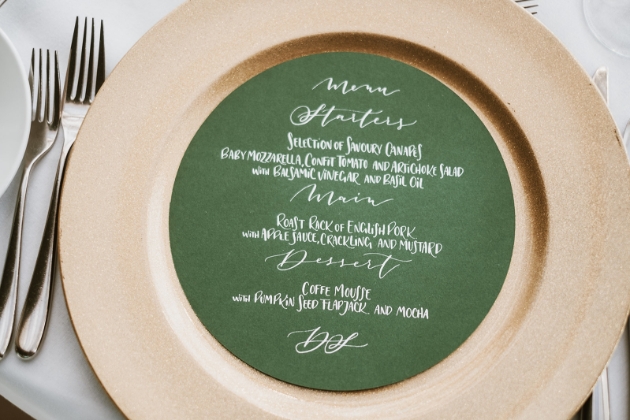 Menu
Starters
Selection of Savoury Canapes
Baby Mozzarella, Confit Tomato and Artichoke Salad
with Balsamic Vinegar and Basil Oil
Main
Roast Rack of English Pork
with Apple Sauce, Crackling and Mustard
Dessert
Coffe Mousse
with Pumpkin Seed Flapjack and Mocha